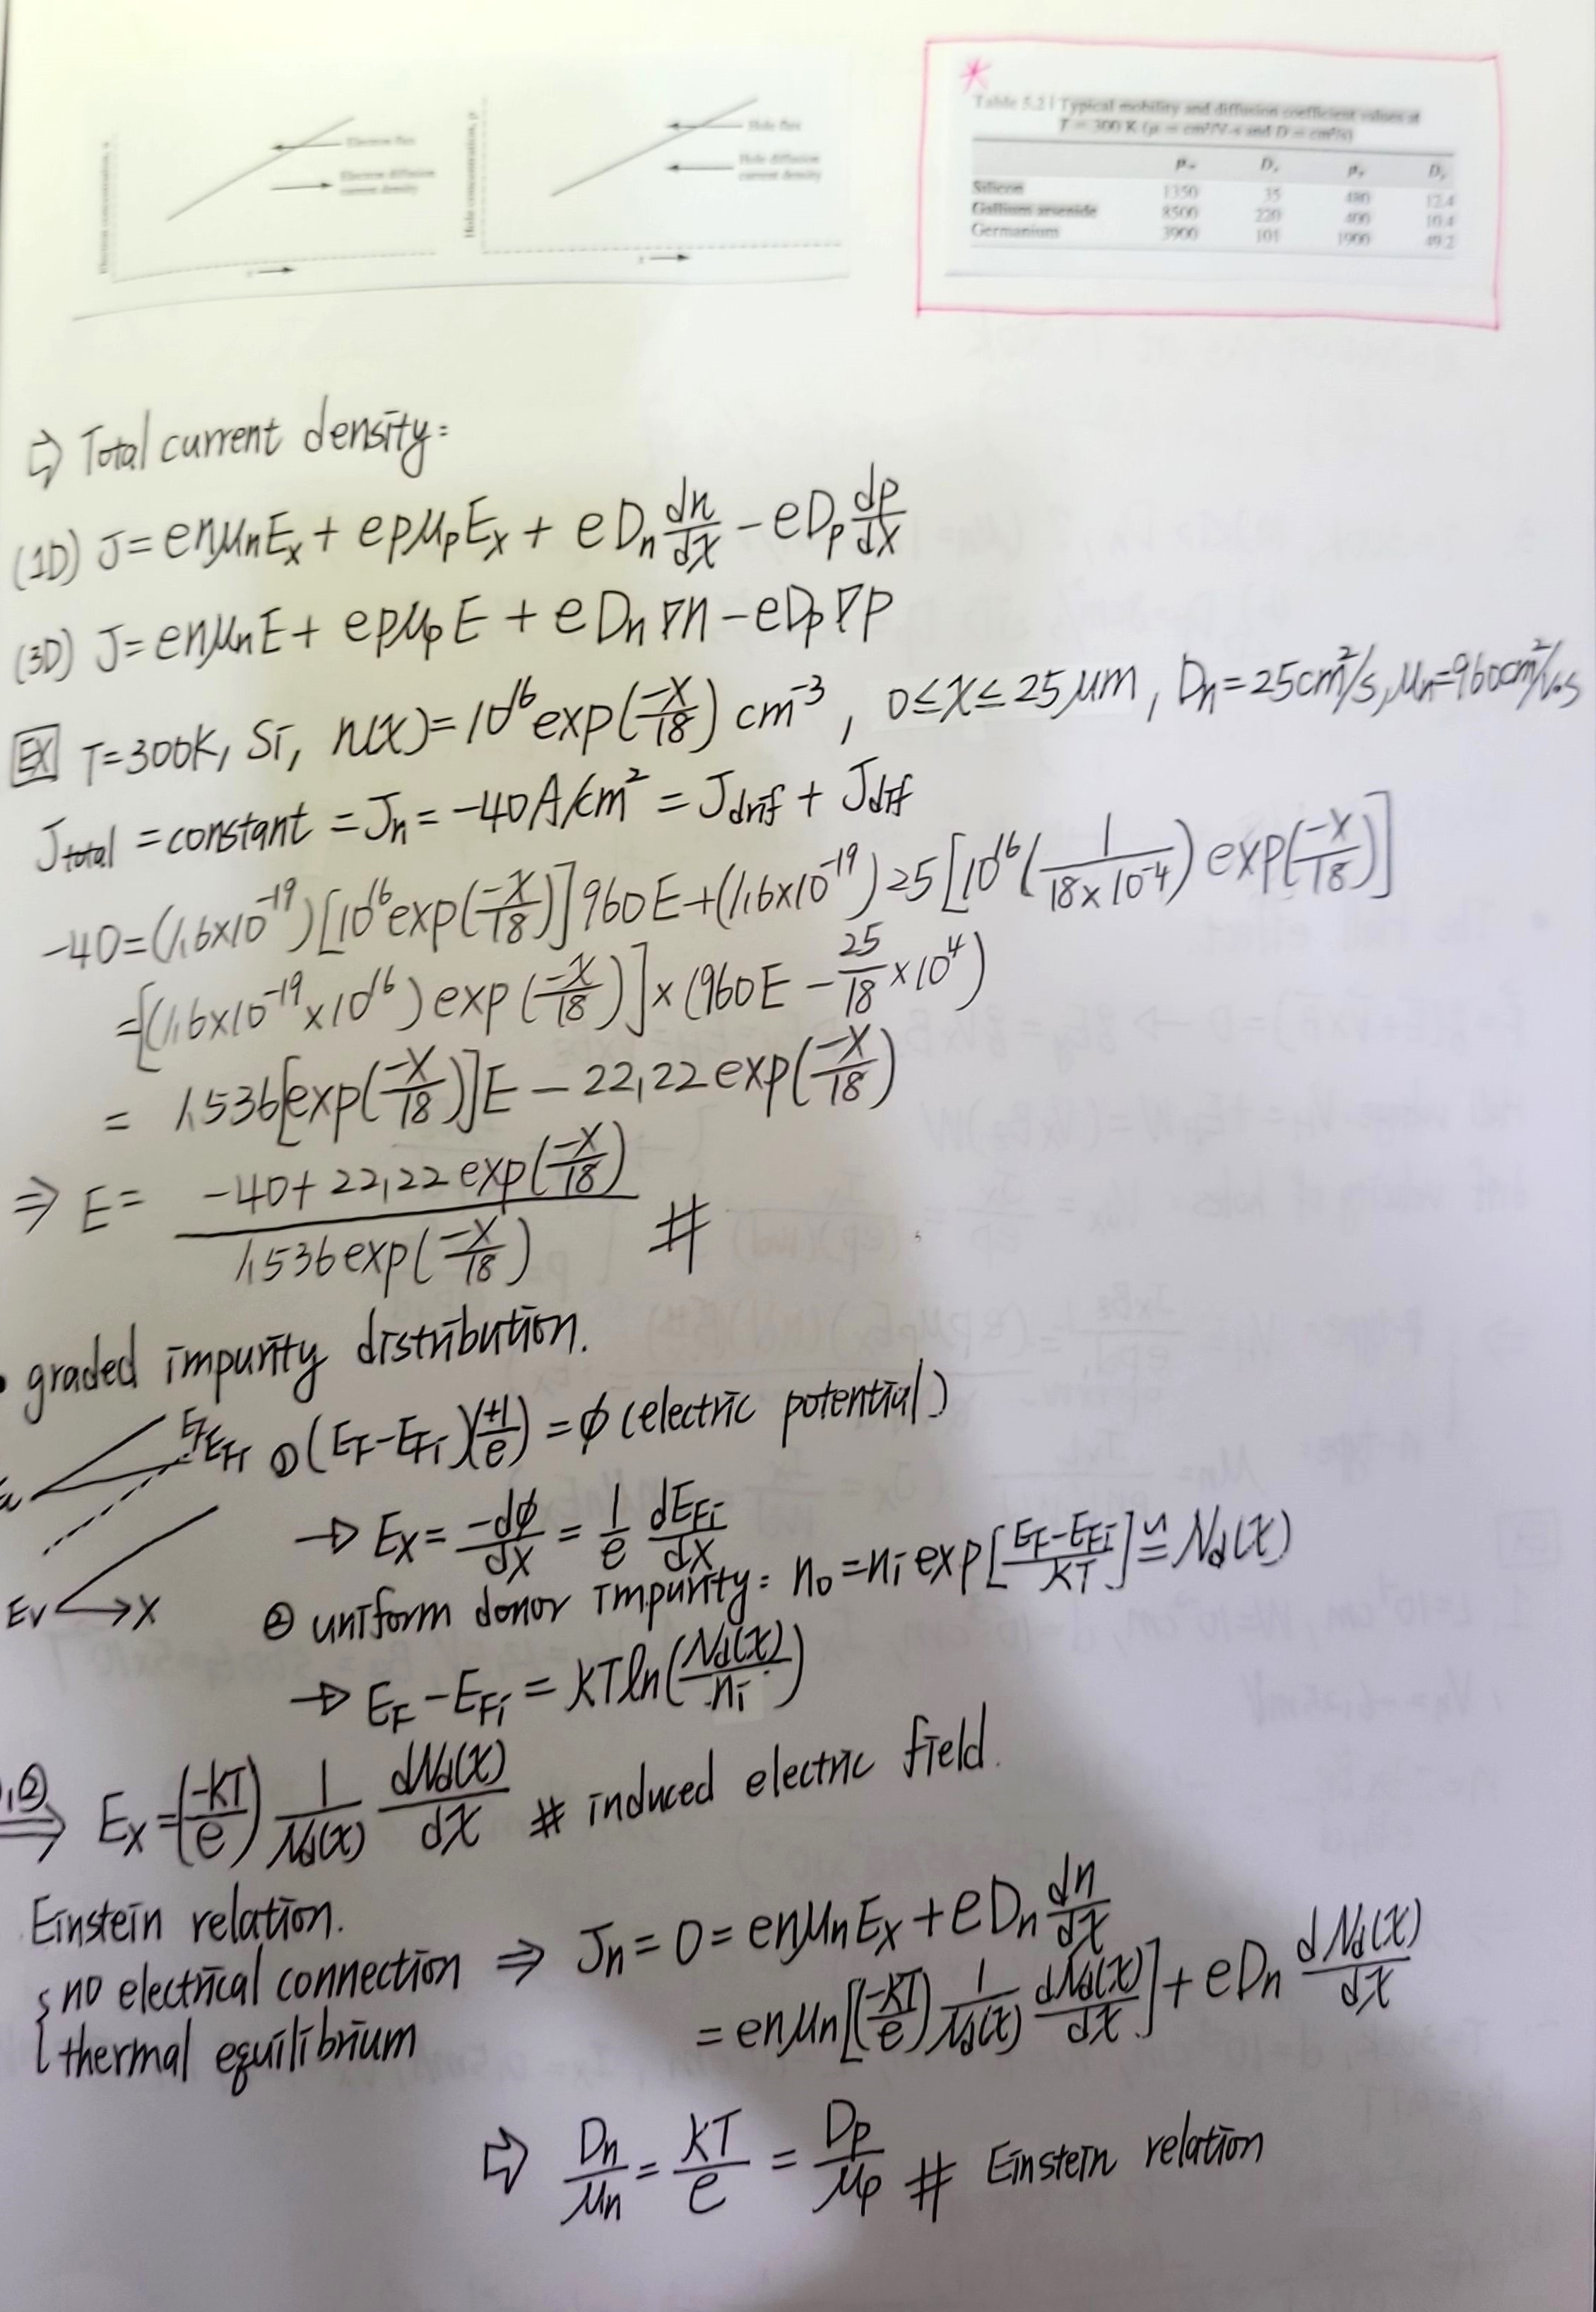 Electron flux
Electron diffusion
current density
Electron concentration, n
x
Hole flux
Hole diffusion
current density
Hole concentration, p
x
*
Table 5.2 | Typical mobility and diffusion coefficient values at
T = 300 K (μ = cm²/V-s and D = cm²/s)
μn Dn μp Dp
Silicon 1350 35 480 12.4
Gallium arsenide 8500 220 400 10.4
Germanium 3900 101 1900 49.2
⇨ Total current density:
(1D) J = enμnEx + epμpEx + eDn dn/dx - eDp dp/dx
(3D) J = enμnE + epμpE + eDn∇n - eDp∇p
EX T=300K, Si, n(x)=10^16 exp(-x/18) cm^-3, 0≤x≤25μm, Dn=25cm²/s, μn=960cm²/V·s
Jtotal = constant = Jn = -40A/cm² = Jdrif + Jdif
-40=(1.6x10^-19)[10^16 exp(-x/18)]960E+(1.6x10^-19)25[10^16(1/(18x10^-4))exp(-x/18)]
=[(1.6x10^-19x10^16)exp(-x/18)]x(960E - 25/18 x10^4)
= 1.536[exp(-x/18)]E - 22.22exp(-x/18)
⇒ E = (-40+22.22exp(-x/18))/(1.536exp(-x/18)) #
• graded impurity distribution.
EF
EFi
Ev
x
① (EF-EFi)(+1/e) = φ (electric potential)
→ Ex = -dφ/dx = 1/e dEFi/dx
② uniform donor impurity: n0=ni exp[(EF-EFi)/KT] ≅ Nd(x)
→ EF-EFi = KTln(Nd(x)/ni)
,② ⇒ Ex=(-KT/e) 1/Nd(x) dNd(x)/dx # induced electric field.
Einstein relation.
{ no electrical connection
thermal equilibrium
⇒ Jn = 0 = enμnEx + eDn dn/dx
= enμn[(-KT/e) 1/Nd(x) dNd(x)/dx] + eDn dNd(x)/dx
⇨ Dn/μn = KT/e = Dp/μp # Einstein relation